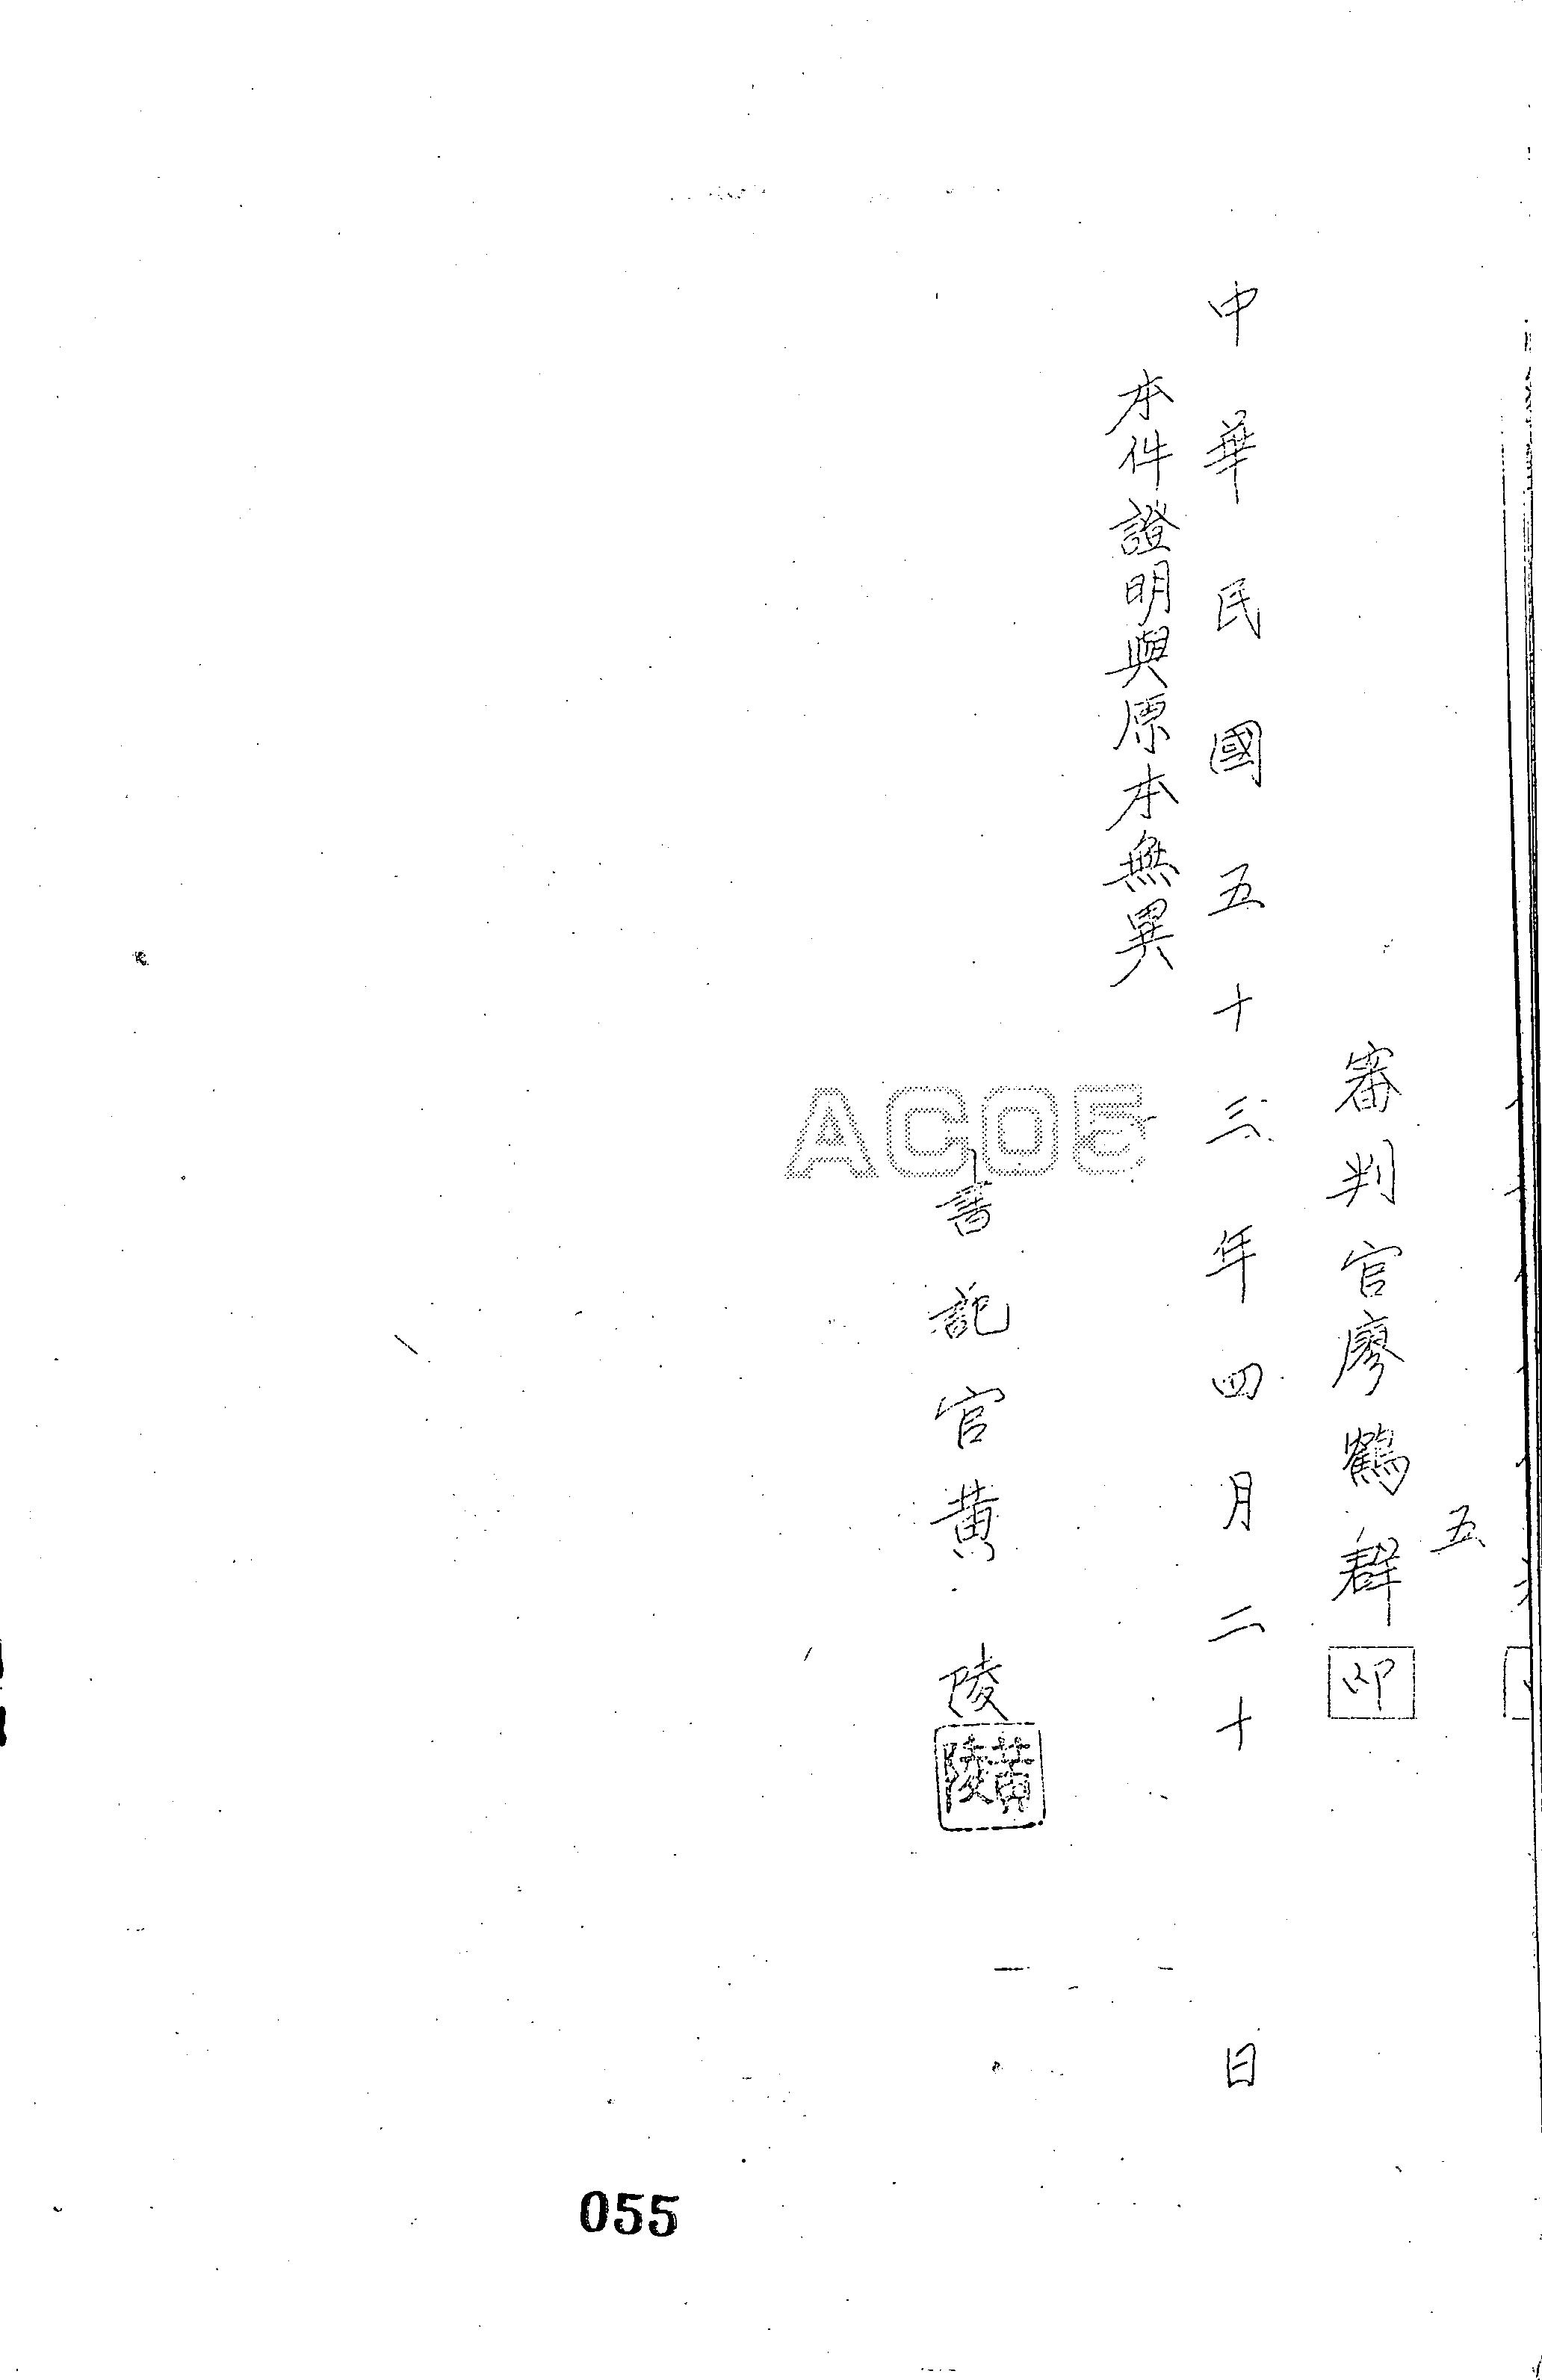 五
審判官廖鶴群印
中華民國五十三年四月二十日
本件證明與原本無異
書記官黄陵
黄陵
AC05
055